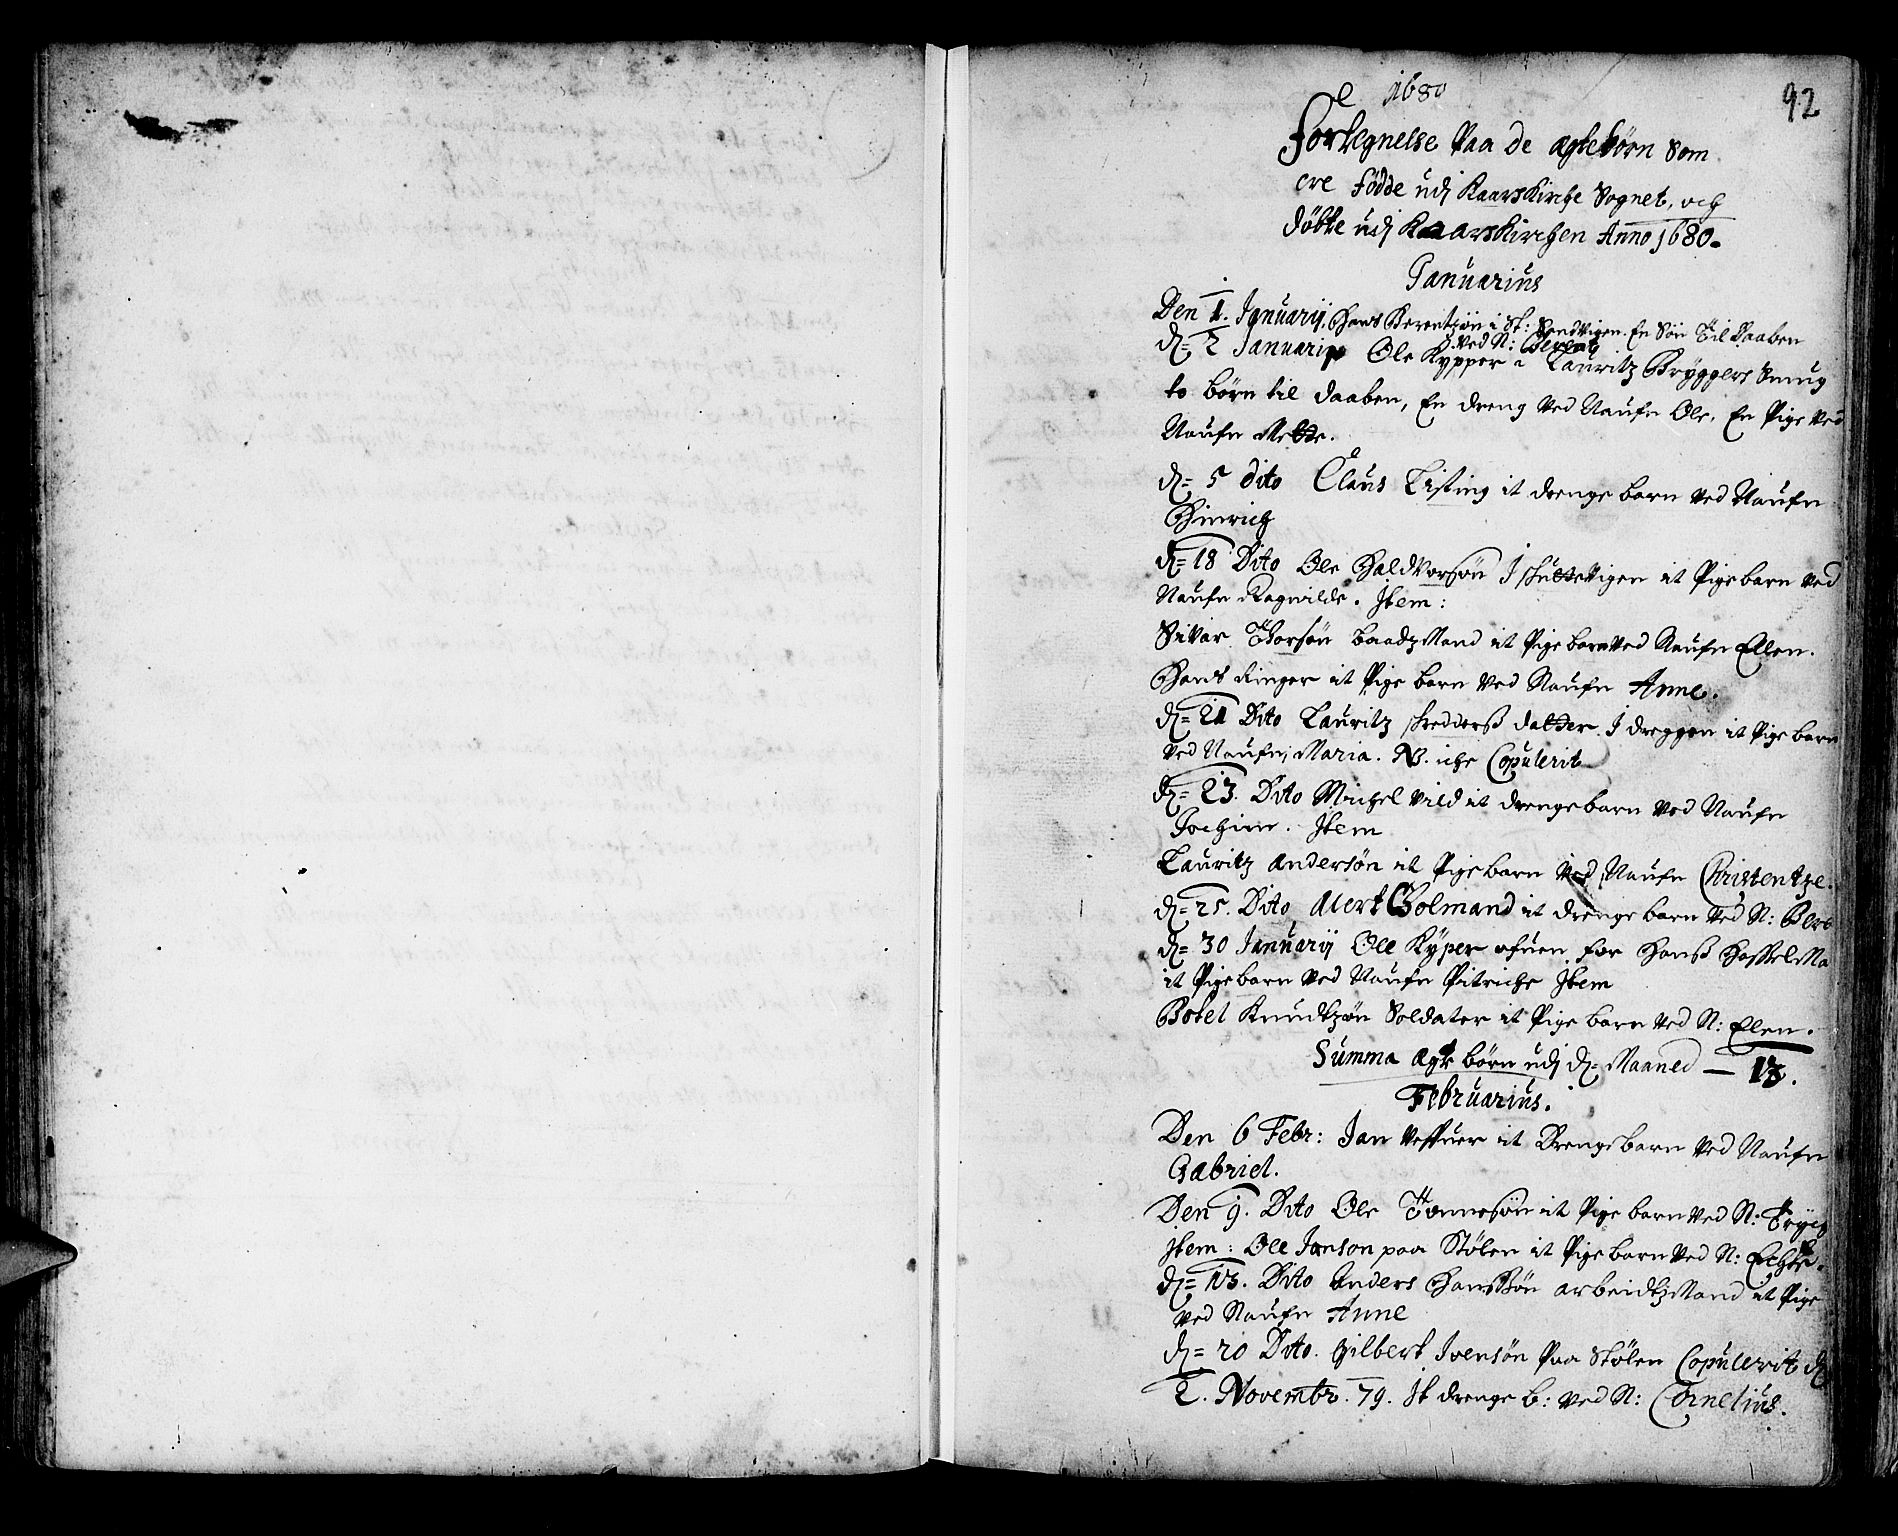 92
1680
Fortegnelse Paa De ægtebørn Som
ere fødde udj Kaarskirche Sognet, och
døbte udj Kaarskirchen Anno 1680.
Januarius
Den 1. Januarij. Hans Berentzøn i St: Sandvigen. En Søn Til Daaben
Ved N: Berent
d= 2 Januarij Ole Kypper i Lauritz Bryggers Smug
to børn til daaben, En dreng Ved Naufn Ole, En Pige Ved
Naufn Mette.
d= 5 dito Claus Listing it drenge barn Ved Naufn
Hinrich
d= 18 Dito Ole Haldvorsøn I skuttevigen it Pige barn Ved
Naufn Ragnilde. Item:
Sivar Thorsøn baadzMand it Pige barn Ved Naufn Ellen.
Hans Ringer it Pige barn Ved Naufn Anne.
d= 21 Dito Lauritz skredderß datter I dreggen it Pige barn
Ved Naufn, Maria. NB. iche Copulerit
d= 23. Dito Michel Vild it drengebarn Ved Naufn
Jochim. Item
Lauritz Andersøn it Pige barn Ved Naufn Christentze.
d= 25. Dito Alert Golmand it drenge barn Ved N:
d= 30 Januarij Ole Kyper ofuen for Hanß
it Pige barn Ved Naufn Pitriche Item
Botel Knudtzøn Soldater it Pige barn Ved N: Elen.
Summa ægte børn udj d= Maaned — 13.
Februarius.
Den 6 Febr: Jan Veffuer it Drengebarn Ved Naufn
Gabriel.
Den 9. Dito Ole Tønnesøn it Pige barn Ved N:
Item: Ole Janson paa Stølen it Pige barn Ved N: Echte.
d= 13. Dito Anders Hanssøn arbeidtzMand it Pige
Ved Naufn Anne
d= 20 Dito. Gilbert Ivensøn Paa Stølen Copulerit d=
2. Novembr. 79. It drenge b: Ved N: Cornelius.